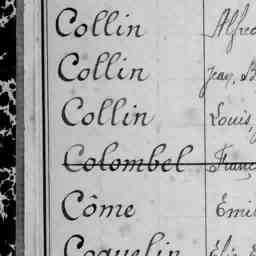 Collin Alfred
Collin Jean, B
Collin Louis,
Colombel Franç
Côme Emil
Coquelin Elie